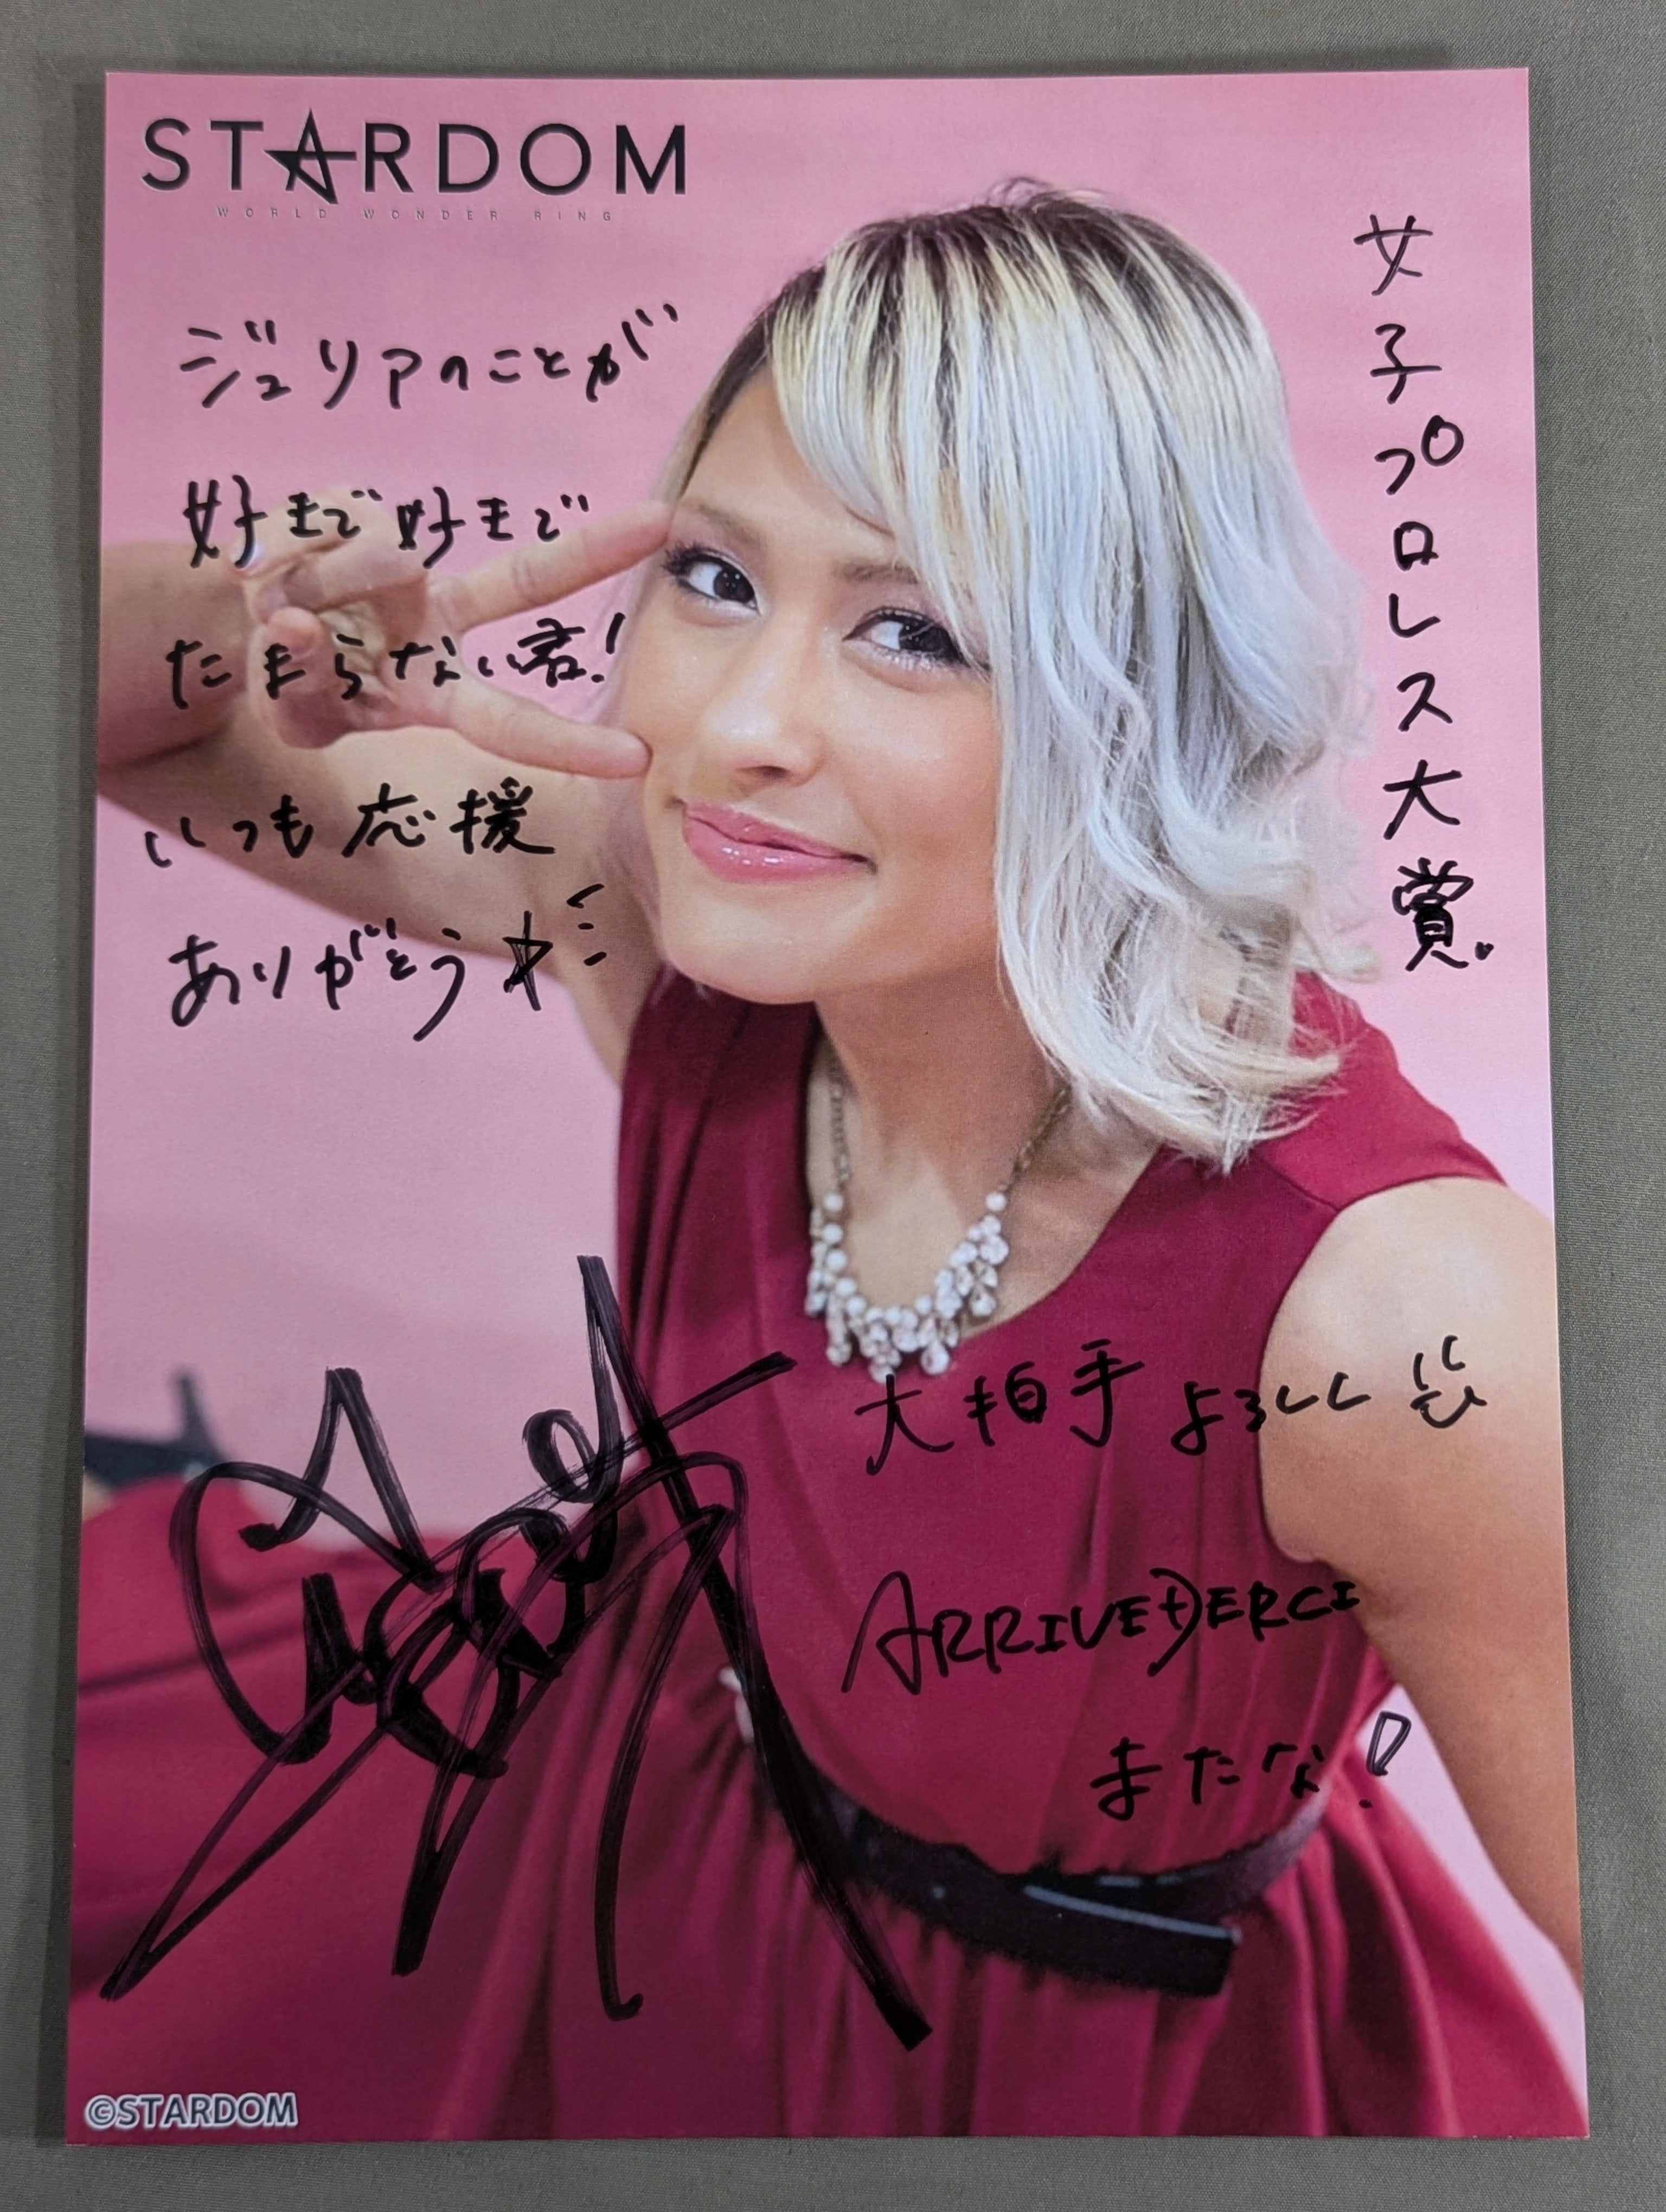 STARDOM
WORLD WONDER RING
ジュリアのことが
好きで好きで
たまらない君!
いつも応援
ありがとう
女子プロレス大賞。
大拍手よろしく
ARRIVEDERCI
またな!
©STARDOM